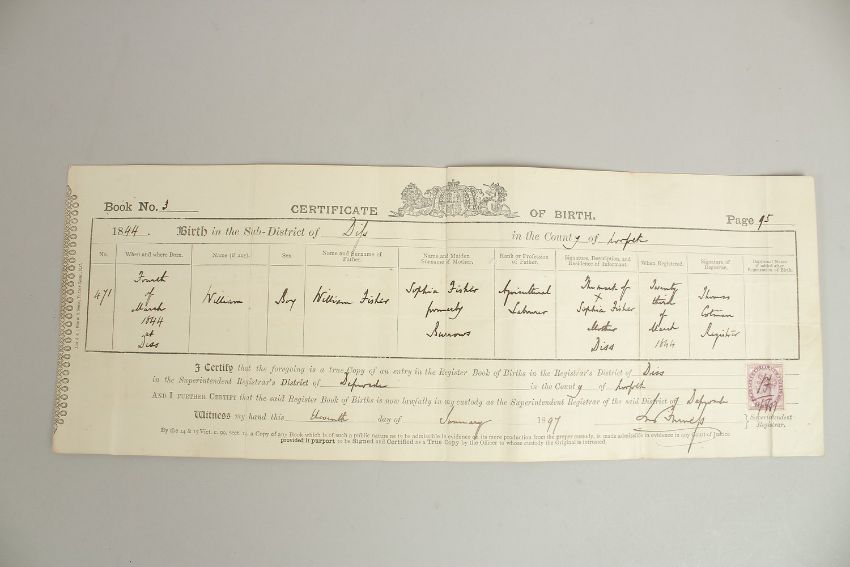 Book No. 3
CERTIFICATE OF BIRTH.
Page 95
1844. Birth in the Sub-District of Diss in the County of Norfolk
No. When and where Born. Name (if any). Sex Name and Surname of Father. Name and Maiden Surname of Mother. Rank or Profession of Father. Signature, Description, and Residence of Informant. When Registered. Signature of Registrar. Baptismal Name if added after Registration of Birth.
471
Fourth of March 1844 at Diss
William
Boy
William Fisher
Sophia Fisher formerly Burrows
Agricultural Labourer
The mark of X Sophia Fisher Mother Diss
Twenty third of March 1844
Thomas Cotman Registrar
I Certify that the foregoing is a true Copy of an entry in the Register Book of Births in the Registrar's District of Diss
in the Superintendent Registrar's District of Depwade in the County of Norfolk
AND I FURTHER CERTIFY that the said Register Book of Births is now lawfully in my custody as the Superintendent Registrar of the said District of Depwade
Witness my hand this day of January 1897
Superintendent Registrar.
By the 14 & 15 Vict. c. 99, sect. 14, a Copy of any Book which is of such a public nature as to be admissible in evidence on its mere production from the proper custody, is made admissible in evidence in any Court of Justice
provided it purport to be Signed and Certified as a True Copy by the Officer to whose custody the Original is intrusted.